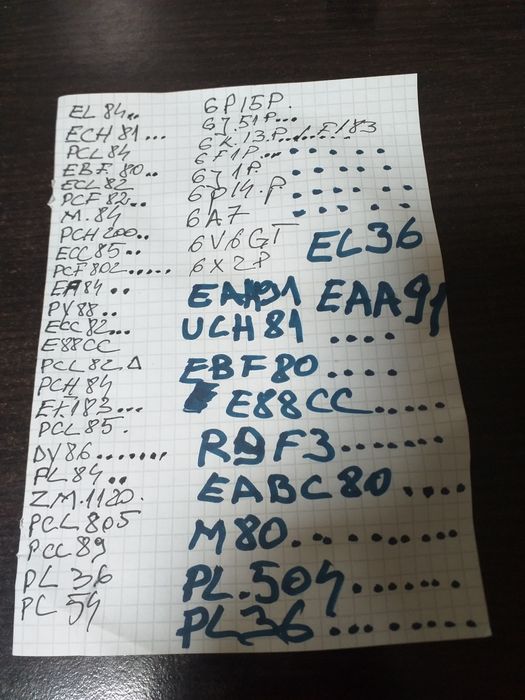 EL 84..
ECH 81...
PCL 84
EBF 80..
ECL 82
PCF 82..
M.84
PCH 200..
ECC 85..
PCF 802.....
EF84 ..
PY 88..
ECC 82...
E88CC
PCL 82 Δ
PCH 84
EF183...
PCL 85.
DY86.......
PL 84..
ZM.1120.
PCL 805
PCC 89
PL 36
PC 54
6P15P.
6J.51P...
6K.13P../.EF183
6F1P...
6J1P.
6P14.P
6A7
6V6GT
6X2P
EL36
EAA91 EAA91
UCH 81 ....
EBF80 ....
E88CC......
R9F3.......
EABC80 ....
M80.........
PL.504.......
PL36 .......